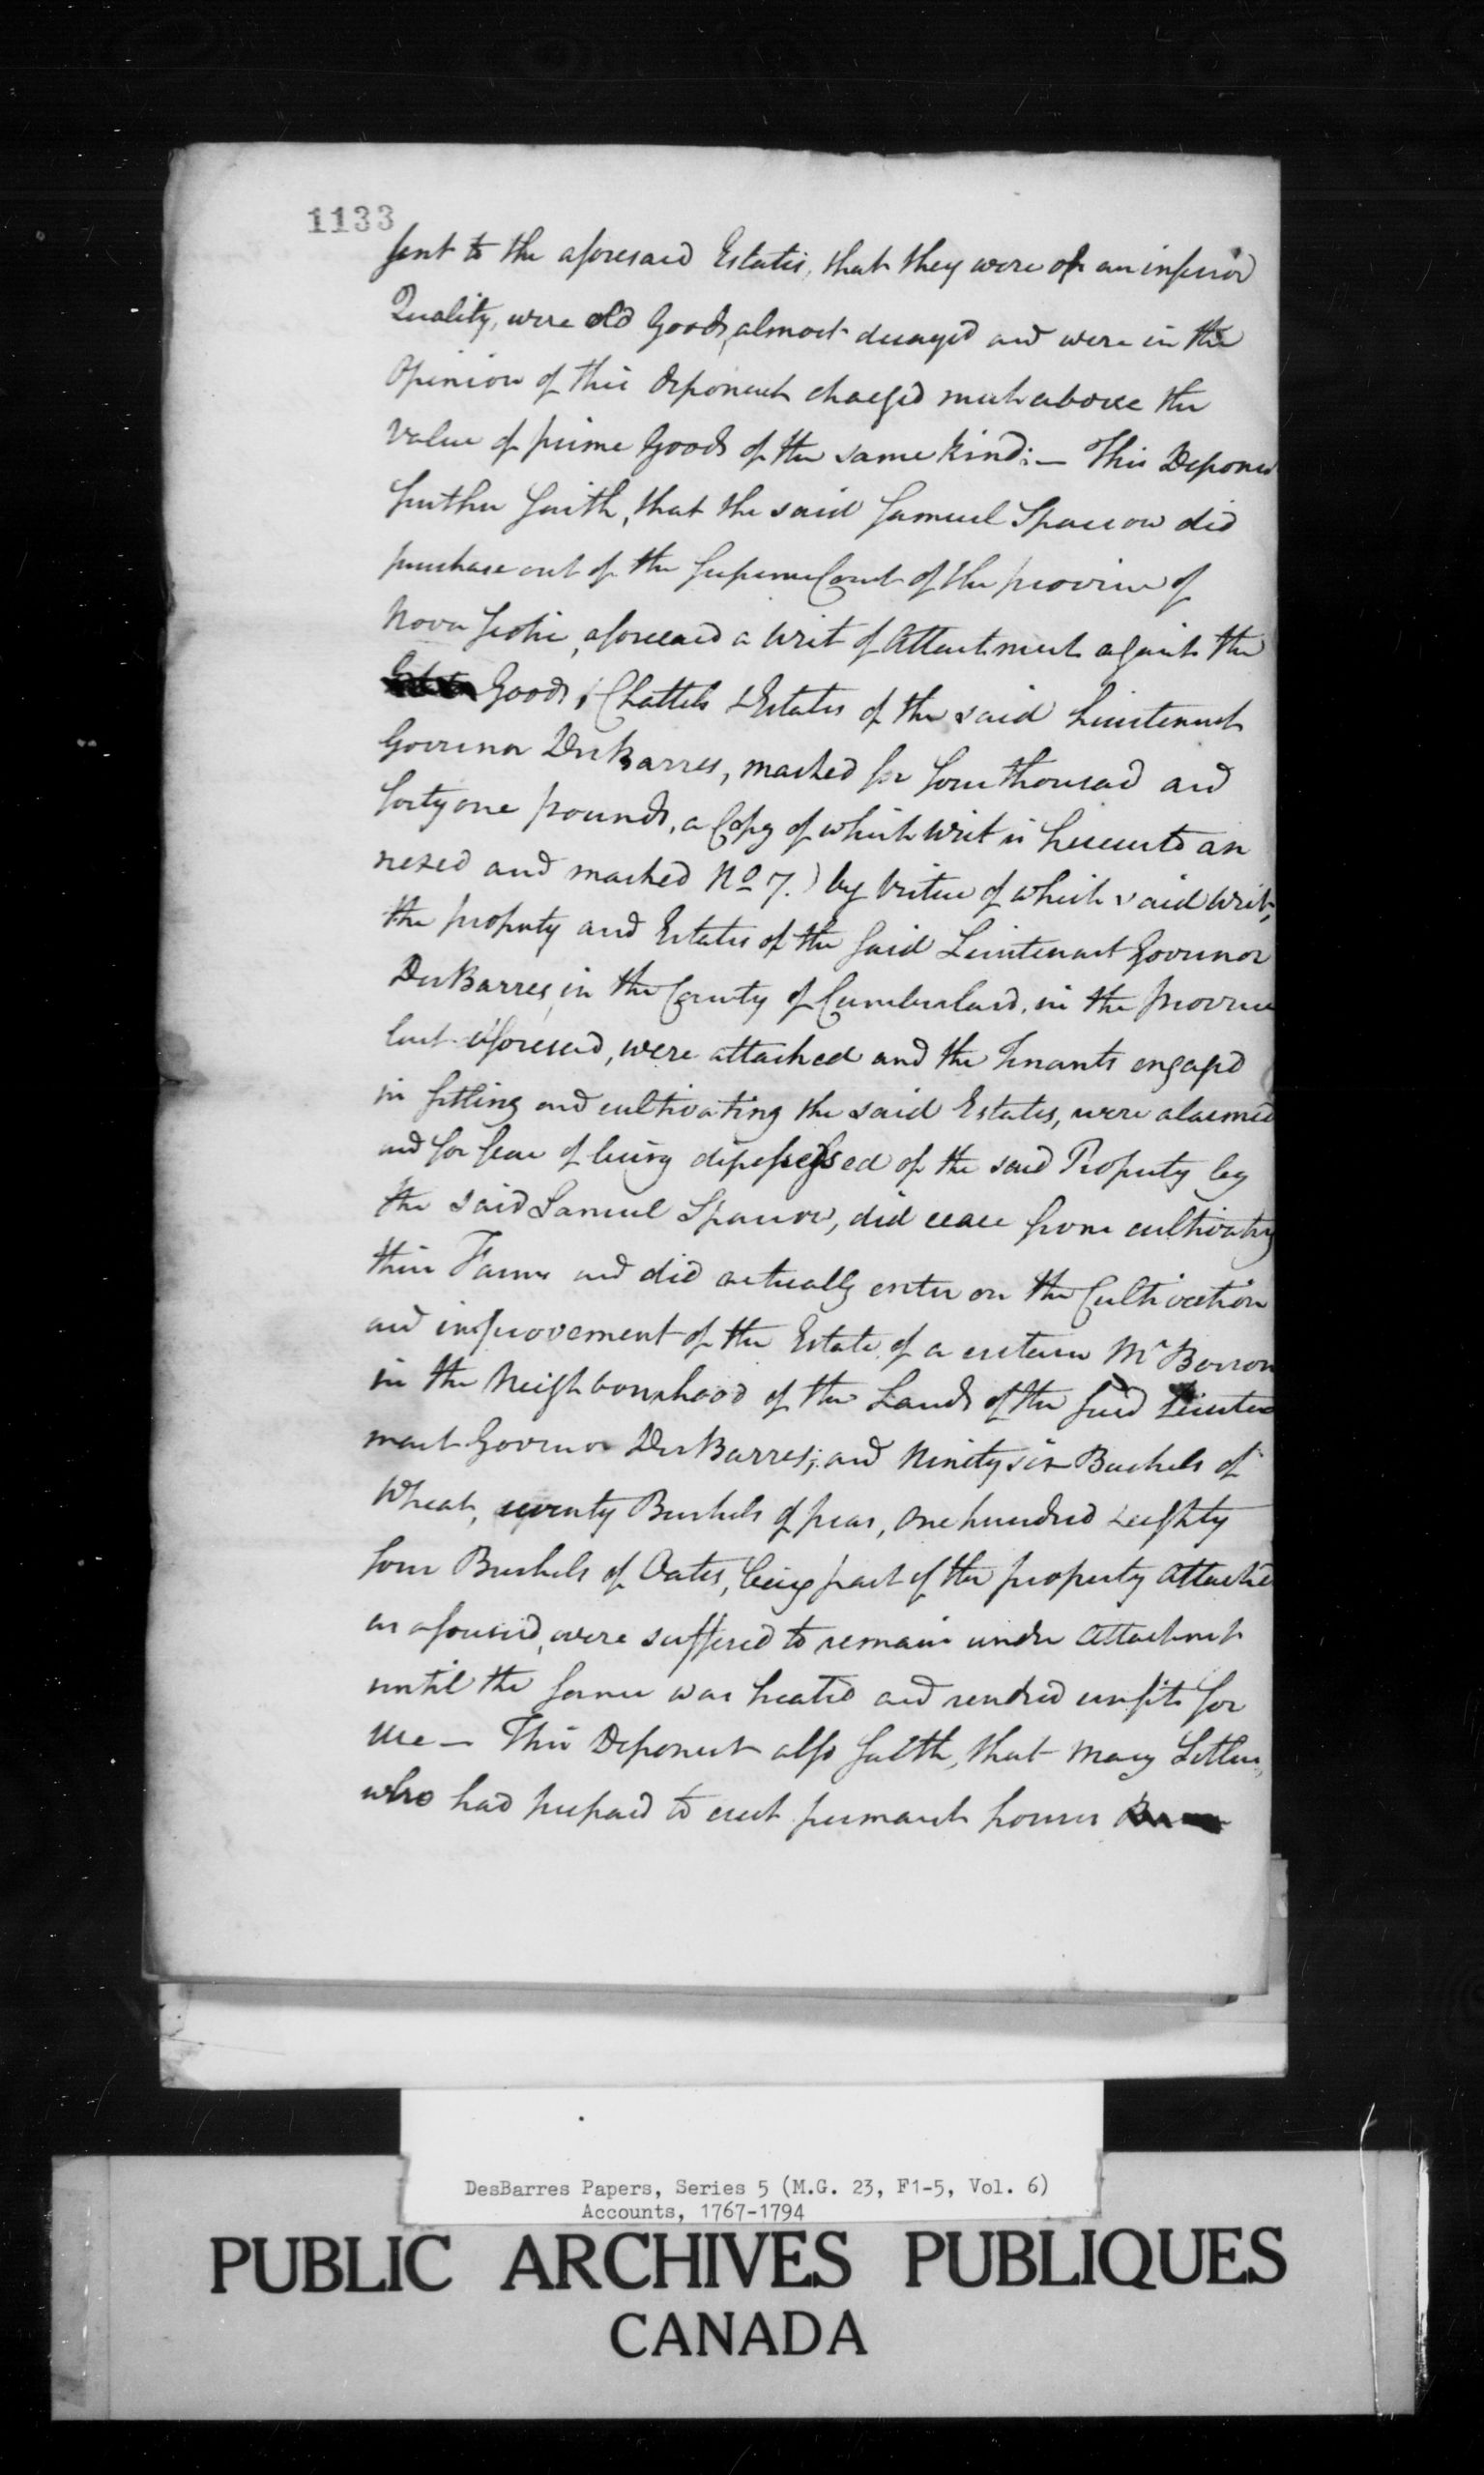 1133
sent to the aforesaid Estates, that they were of an inferior
Quality, were old Goods, almost decayed and were in the
Opinion of this deponent charged much above the
value of prime Goods of the same kind:— This Deponent
further saith, that the said Samuel Sparrow did
purchase out of the Supreme Court of the province of
Nova Scotia, aforesaid a Writ of Attachment against the
Goods, Chattels & Estates of the said Lieutenant
Governor DesBarres, marked for four thousand and
forty one pounds, a Copy of which Writ is hereunto an
nexed and marked No 7.) by Virtue of which said Writ,
the property and Estates of the said Lieutenant Governor
DesBarres, in the County of Cumberland, in the province
last aforesaid, were attached and the Tenants engaged
in settling and cultivating the said Estates, were alarmed
and for fear of being dispossessed of the said Property by
the said Samuel Sparrow, did cease from cultivating
their Farms and did actually enter on the Cultivation
and improvement of the Estate of a certain Mr Barron
in the Neighbourhood of the Lands of the said Lieute
nant Governor DesBarres; and Ninety six Bushels of
Wheat, seventy Bushels of peas, One hundred & eighty
four Bushels of Oates, being part of the property Attached
as aforesaid, were suffered to remain under Attachment
until the same was heated and rendred unfit for
Use — This Deponent also saith, that many Settlers,
who had prepared to erect permanent houses
DesBarres Papers, Series 5 (M.G. 23, F1-5, Vol. 6)
Accounts, 1767-1794
PUBLIC ARCHIVES PUBLIQUES
CANADA